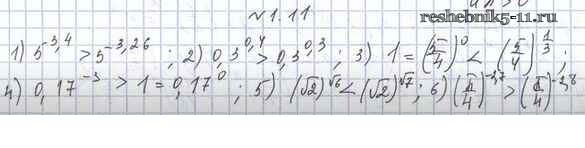 №1.11
reshebnik5-11.ru
1) 5^{-3,4} > 5^{-3,26} ; 2) 0,3^{0,4} > 0,3^{0,3} ; 3) 1 = (5/4)^0 < (5/4)^{1/3} ;
4) 0,17^{-3} > 1 = 0,17^0 ; 5) (√2)^{√6} < (√2)^{√7} ; 6) (π/4)^{-2,7} > (π/4)^{-2,8}